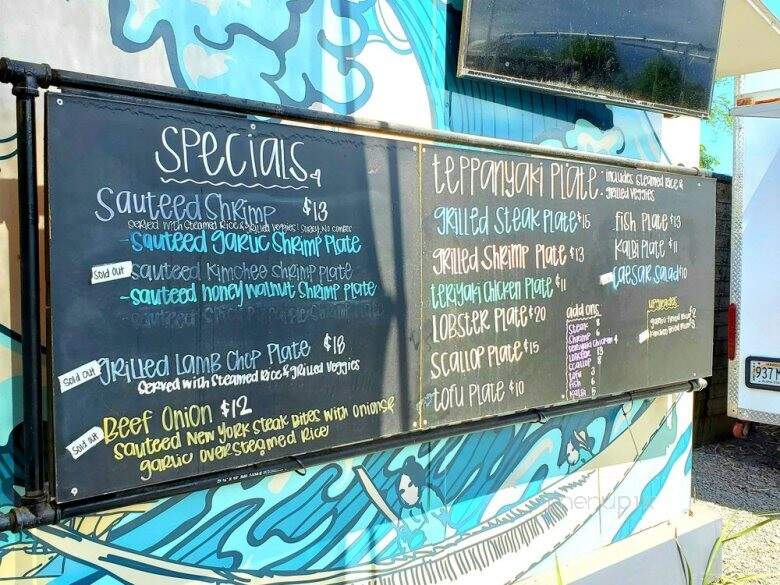 SPECIALS
Sauteed Shrimp $13
served with steamed rice & grilled veggies! sorry, no combos
-sauteed garlic shrimp plate
Sold Out sauteed kimchee shrimp plate
-sauteed honey walnut shrimp plate
Sold Out Grilled Lamb Chop Plate $18
served with steamed rice & grilled veggies
Sold Out Beef Onion $12
sauteed New York steak bites with onions &
garlic over steamed rice
teppanyaki plate: includes steamed rice &
grilled veggies
grilled steak plate $15
grilled shrimp plate $13
teriyaki chicken plate $11
LOBSTER PLATE $20
scallop plate $15
tofu plate $10
fish plate $13
kalbi plate $11
caesar salad $10
add ons
steak 8
shrimp 6
teriyaki chicken 4
lobster 13
scallop 8
tofu 3
fish 6
kalbi 5
upgrades
garlic fried rice $2
937 M